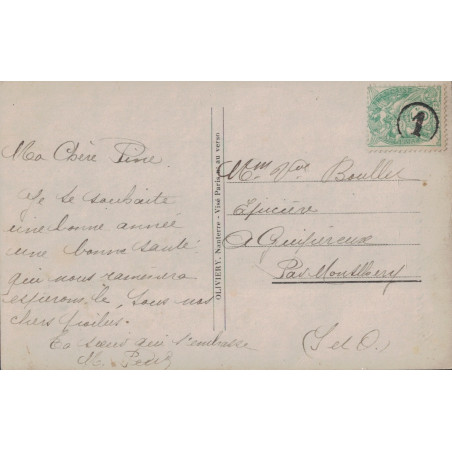 Ma Chère Fine
Je te souhaite
une bonne année
une bonne santé
qui nous ramènera
espérons le, tous nos
chers poilus.
Ta soeur qui t'embrasse
M.
OLIVIERY, Nanterre - Visé Paris au verso
Mme Vve Boullet
Epicière
A Guipereux
Par Montlhery
(S et O.)
1